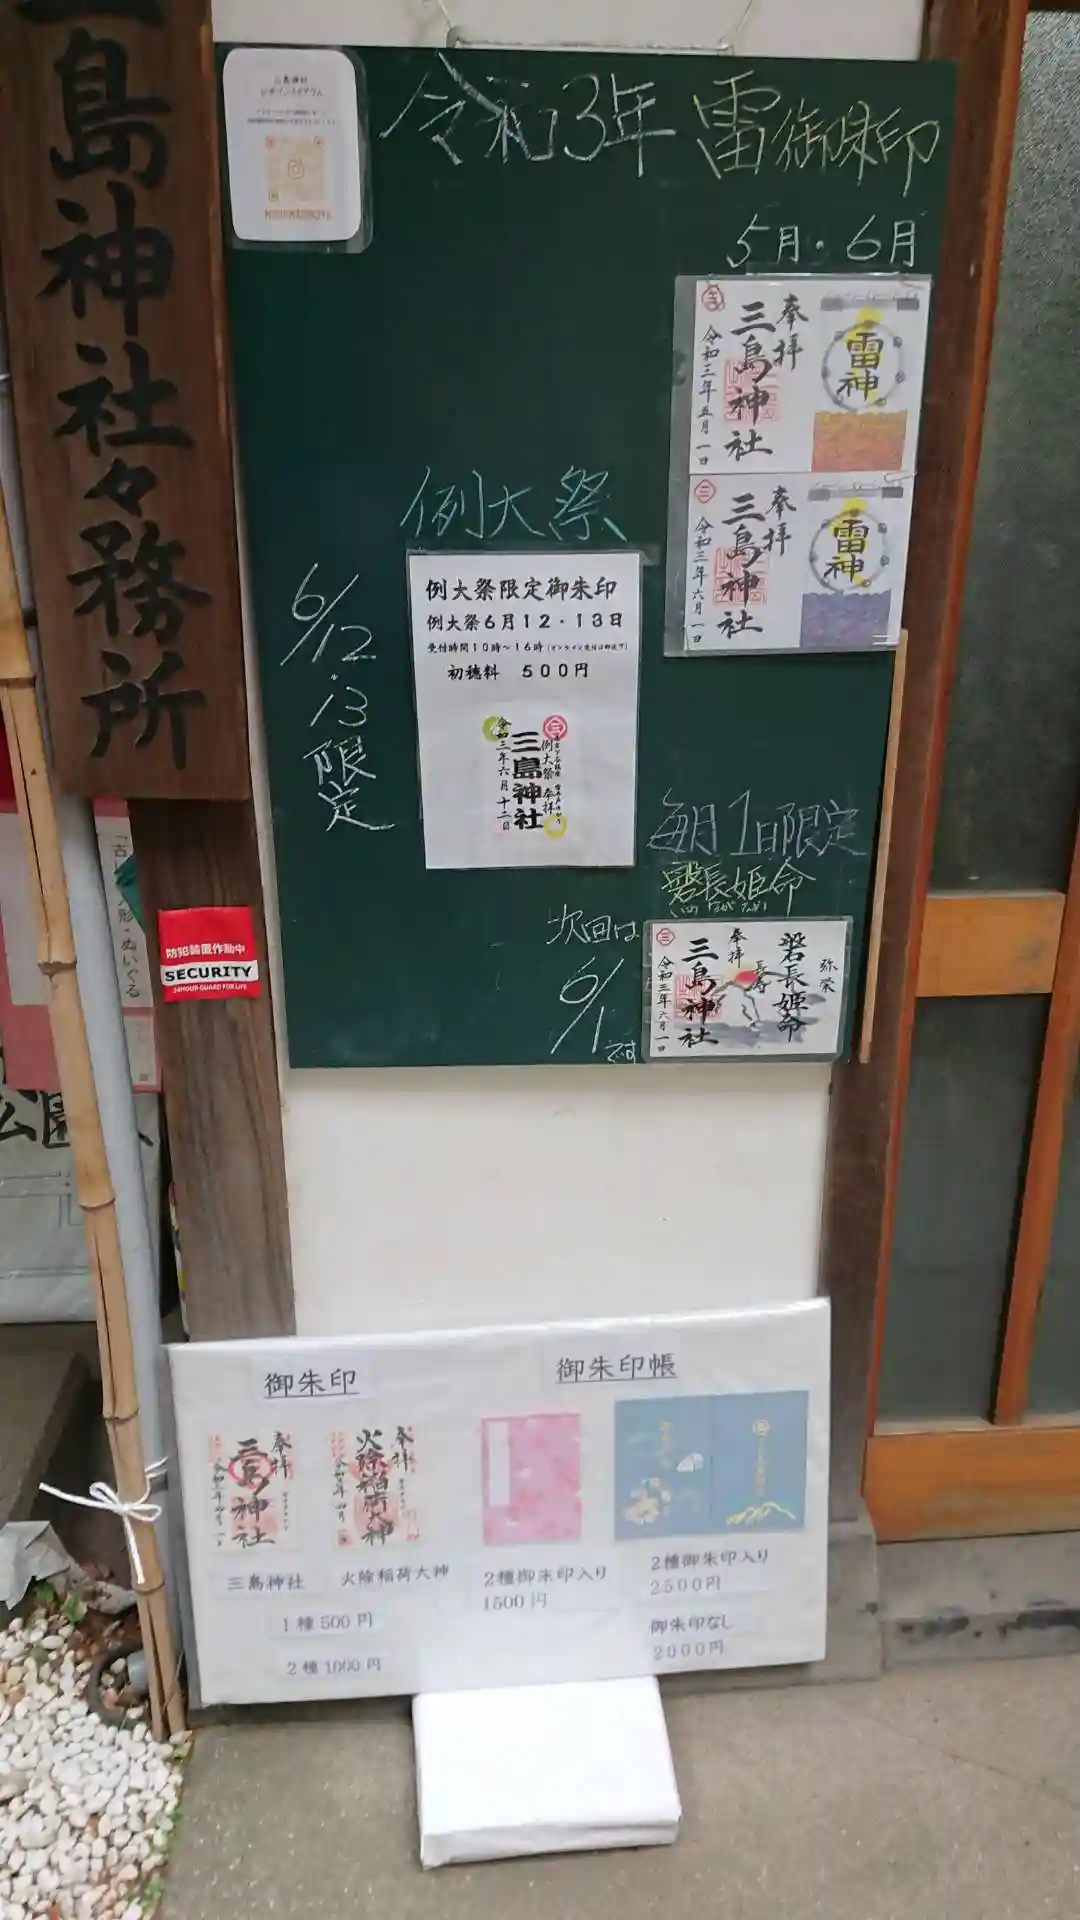 三島神社々務所
三島神社
令和3年 雷御朱印
5月・6月
奉拝
三島神社
令和三年五月一日
雷神
奉拝
三島神社
令和三年六月一日
雷神
例大祭
6/12.13限定
例大祭限定御朱印
例大祭6月12・13日
受付時間10時～16時
初穂料 500円
例大祭 奉拝
三島神社
令和三年六月十二日
毎月1日限定
磐長姫命
いわながひめ
次回は
6/1です
弥栄
磐長姫命
長寿
奉拝
三島神社
令和三年六月一日
防犯装置作動中
SECURITY
24HOUR GUARD FOR LIFE
人形・ぬいぐる
公園
御朱印
御朱印帳
奉拝
三島神社
奉拝
火除稲荷大神
三島神社
火除稲荷大神
1種500円
2種1000円
2種御朱印入り
1500円
2種御朱印入り
2500円
御朱印なし
2000円